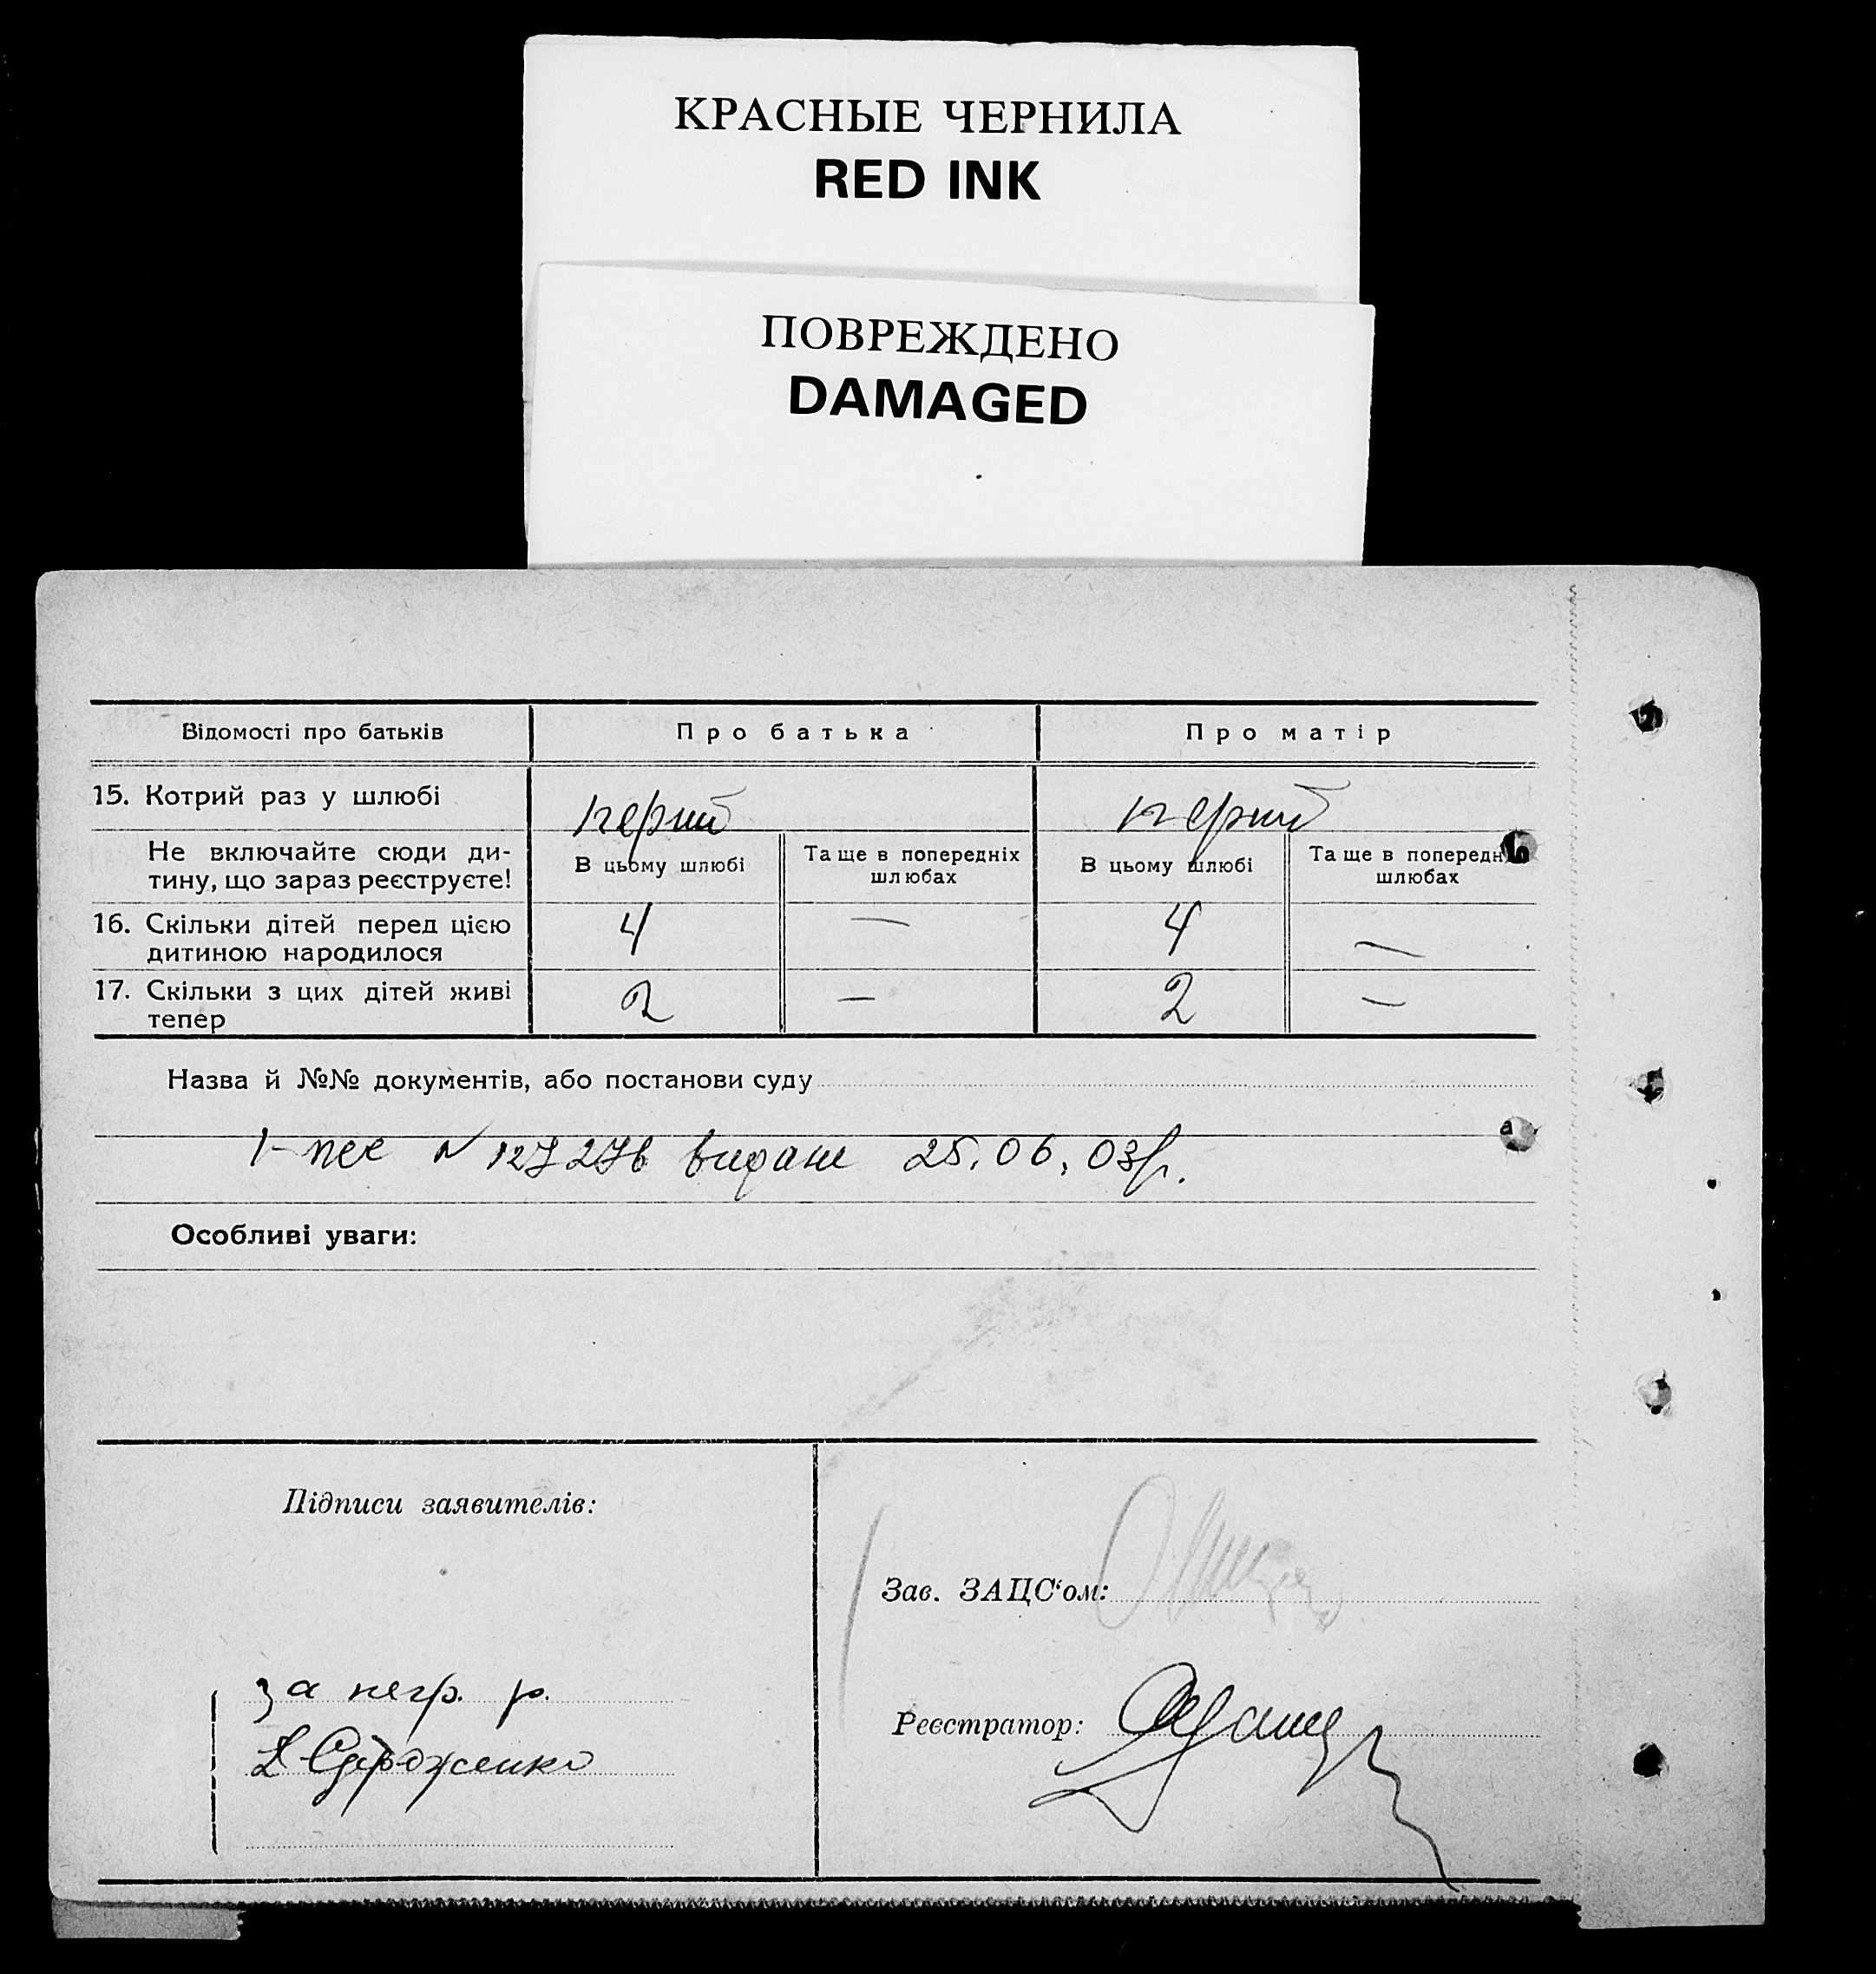 КРАСНЫЕ ЧЕРНИЛА
RED INK
ПОВРЕЖДЕНО
DAMAGED
Відомості про батьків Про батька Про матір
15. Котрий раз у шлюбі перший перший
Не включайте сюди ди-
тину, що зараз реєструєте!
В цьому шлюбі Та ще в попередніх
шлюбах
В цьому шлюбі Та ще в попередн
шлюбах
16. Скільки дітей перед цією
дитиною народилося
4 — 4 —
17. Скільки з цих дітей живі
тепер
2 — 2 —
Назва й №№ документів, або постанови суду
N 127276 видане 25.06.03р.
Особливі уваги:
Підписи заявителів:
за негр. р.
Зав. ЗАЦС‘ом:
Реєстратор: